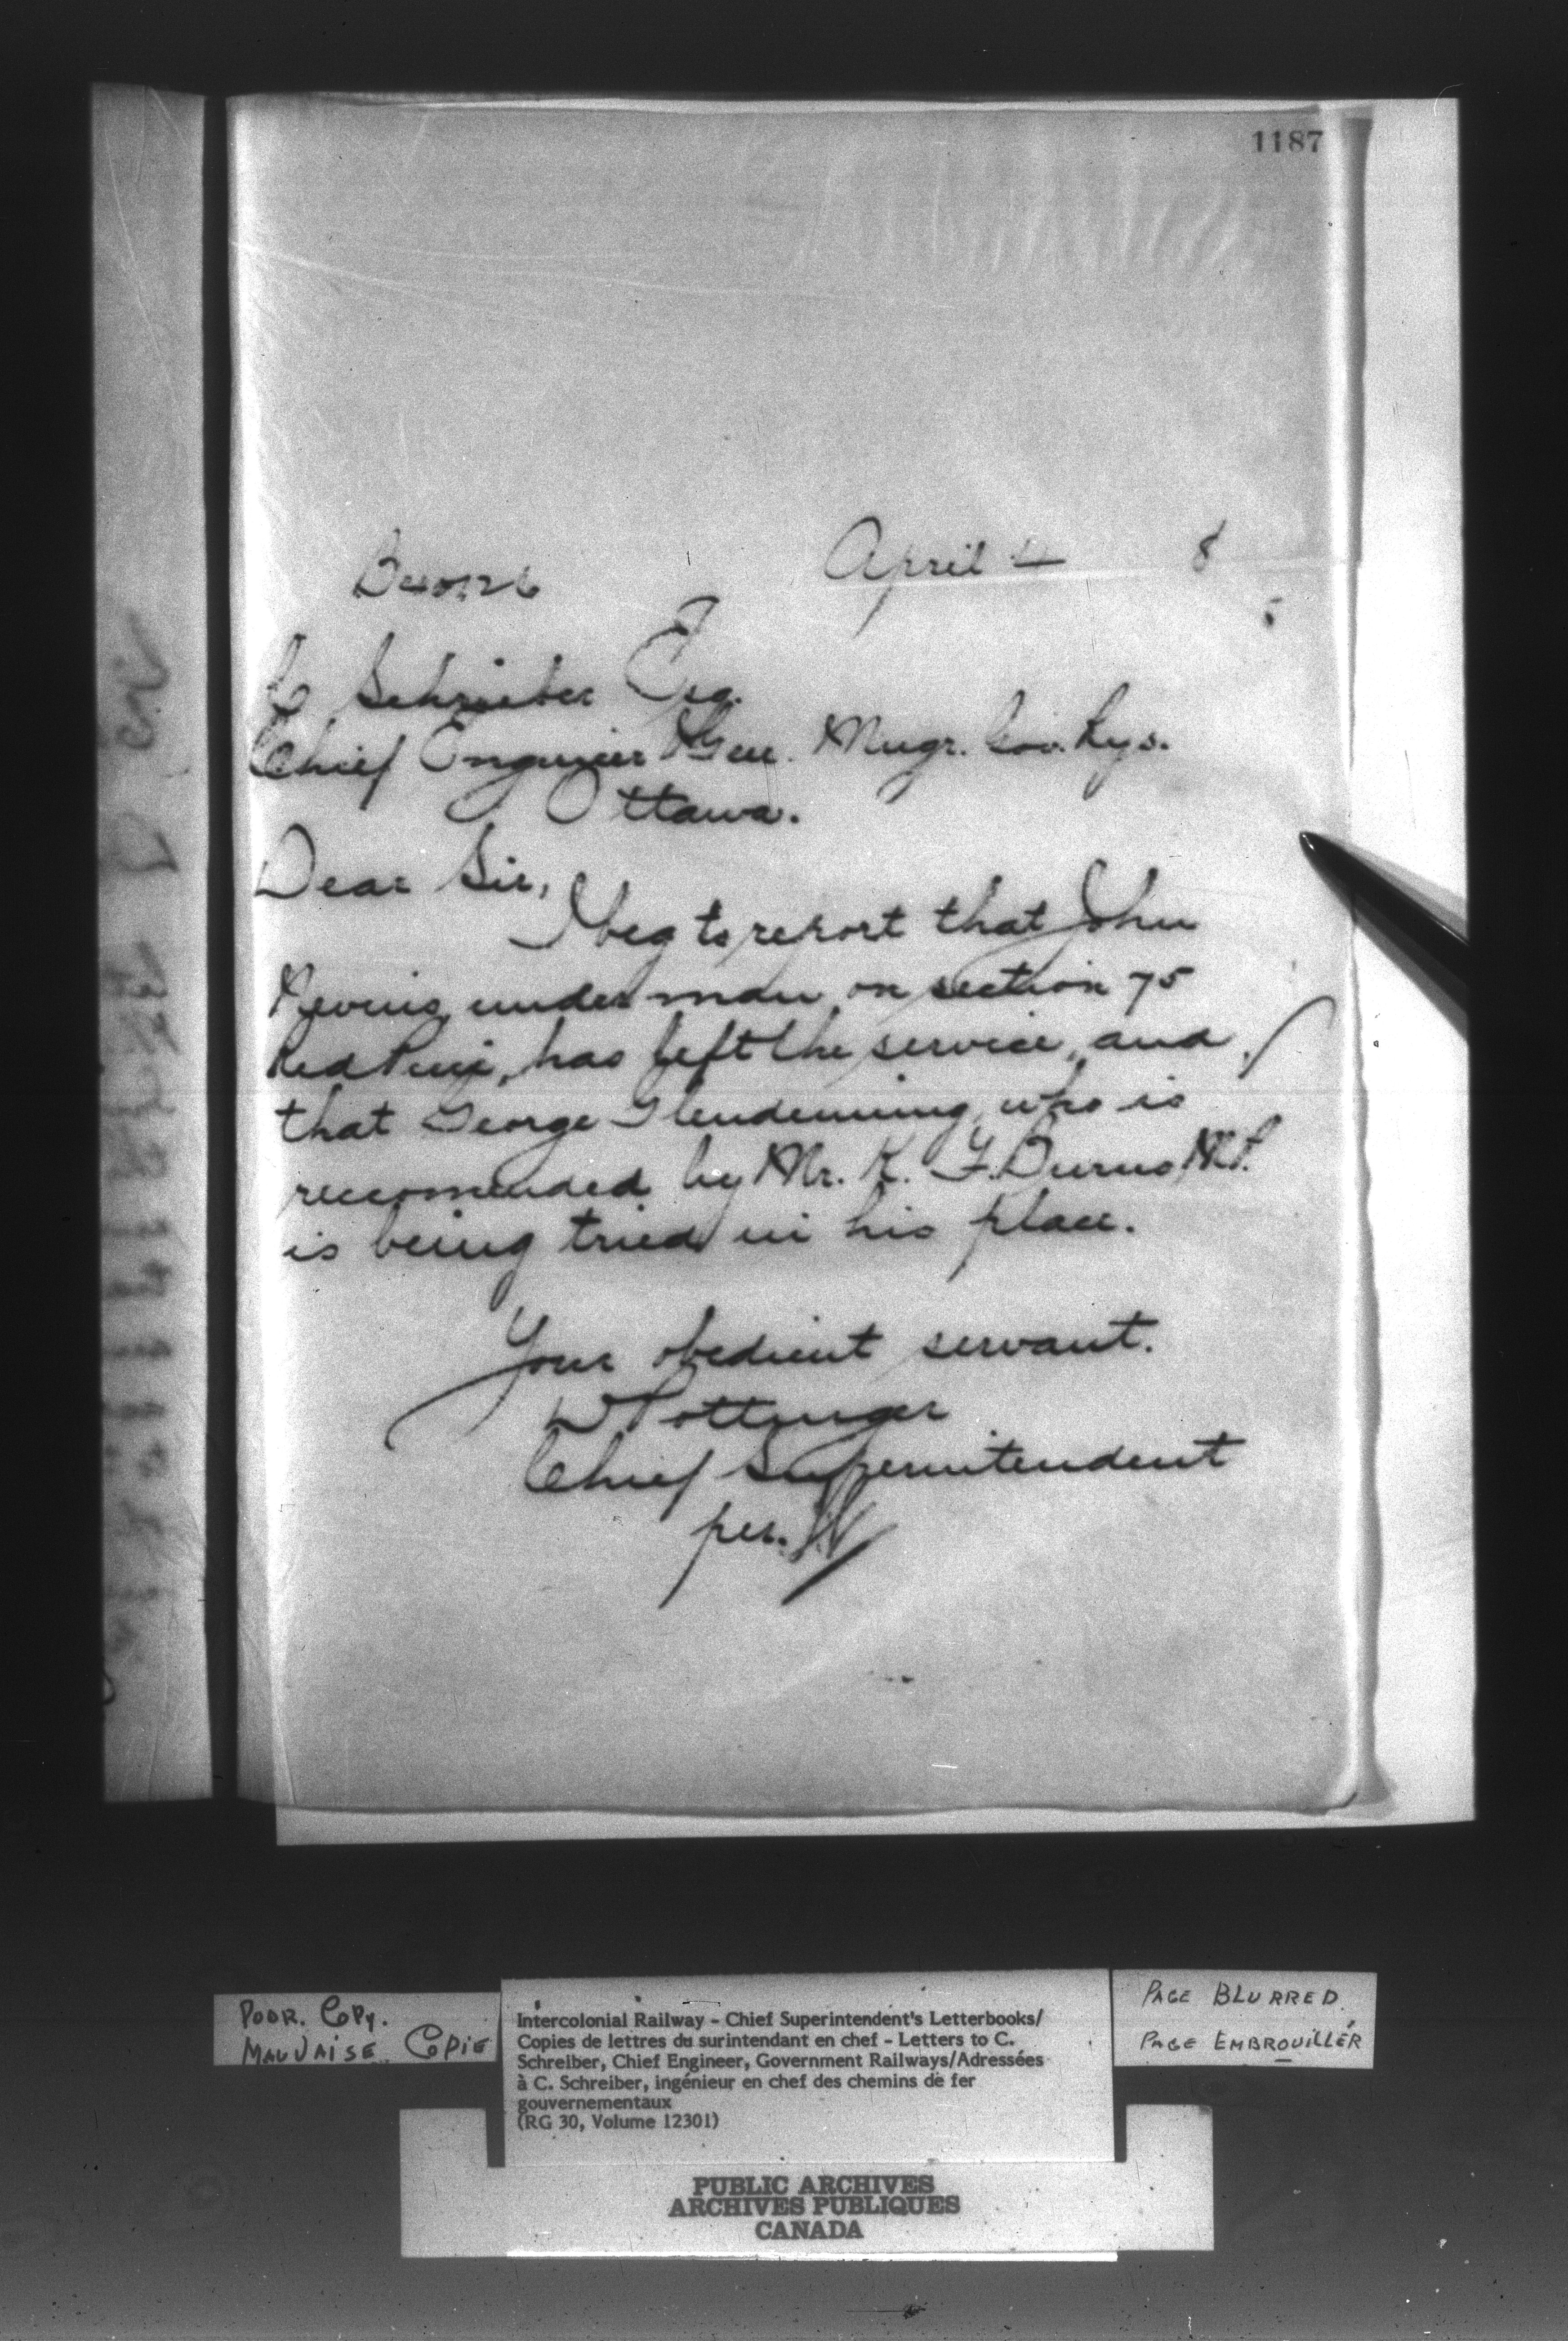 1187
April 4 8
C Schrieber Esq.
Chief Engineer & Gen. Mngr. Gov. Rys.
Ottawa.
Dear Sir,
I beg to report that John
Nevins, under man, on section 75
Red Pine, has left the service, and
that George Glendenning, who is
reccomended by Mr. K. F. Burns M.P.
is being tried in his place.
Your obedient servant.
D Pottinger
Chief Superintendent
per.
POOR. COPY.
MAUVAISE COPIE
Intercolonial Railway - Chief Superintendent's Letterbooks/
Copies de lettres du surintendant en chef - Letters to C.
Schreiber, Chief Engineer, Government Railways/Adressées
à C. Schreiber, ingénieur en chef des chemins de fer
gouvernementaux
(RG 30, Volume 12301)
PAGE BLURRED
PAGE EMBROUILLÉR
PUBLIC ARCHIVES
ARCHIVES PUBLIQUES
CANADA